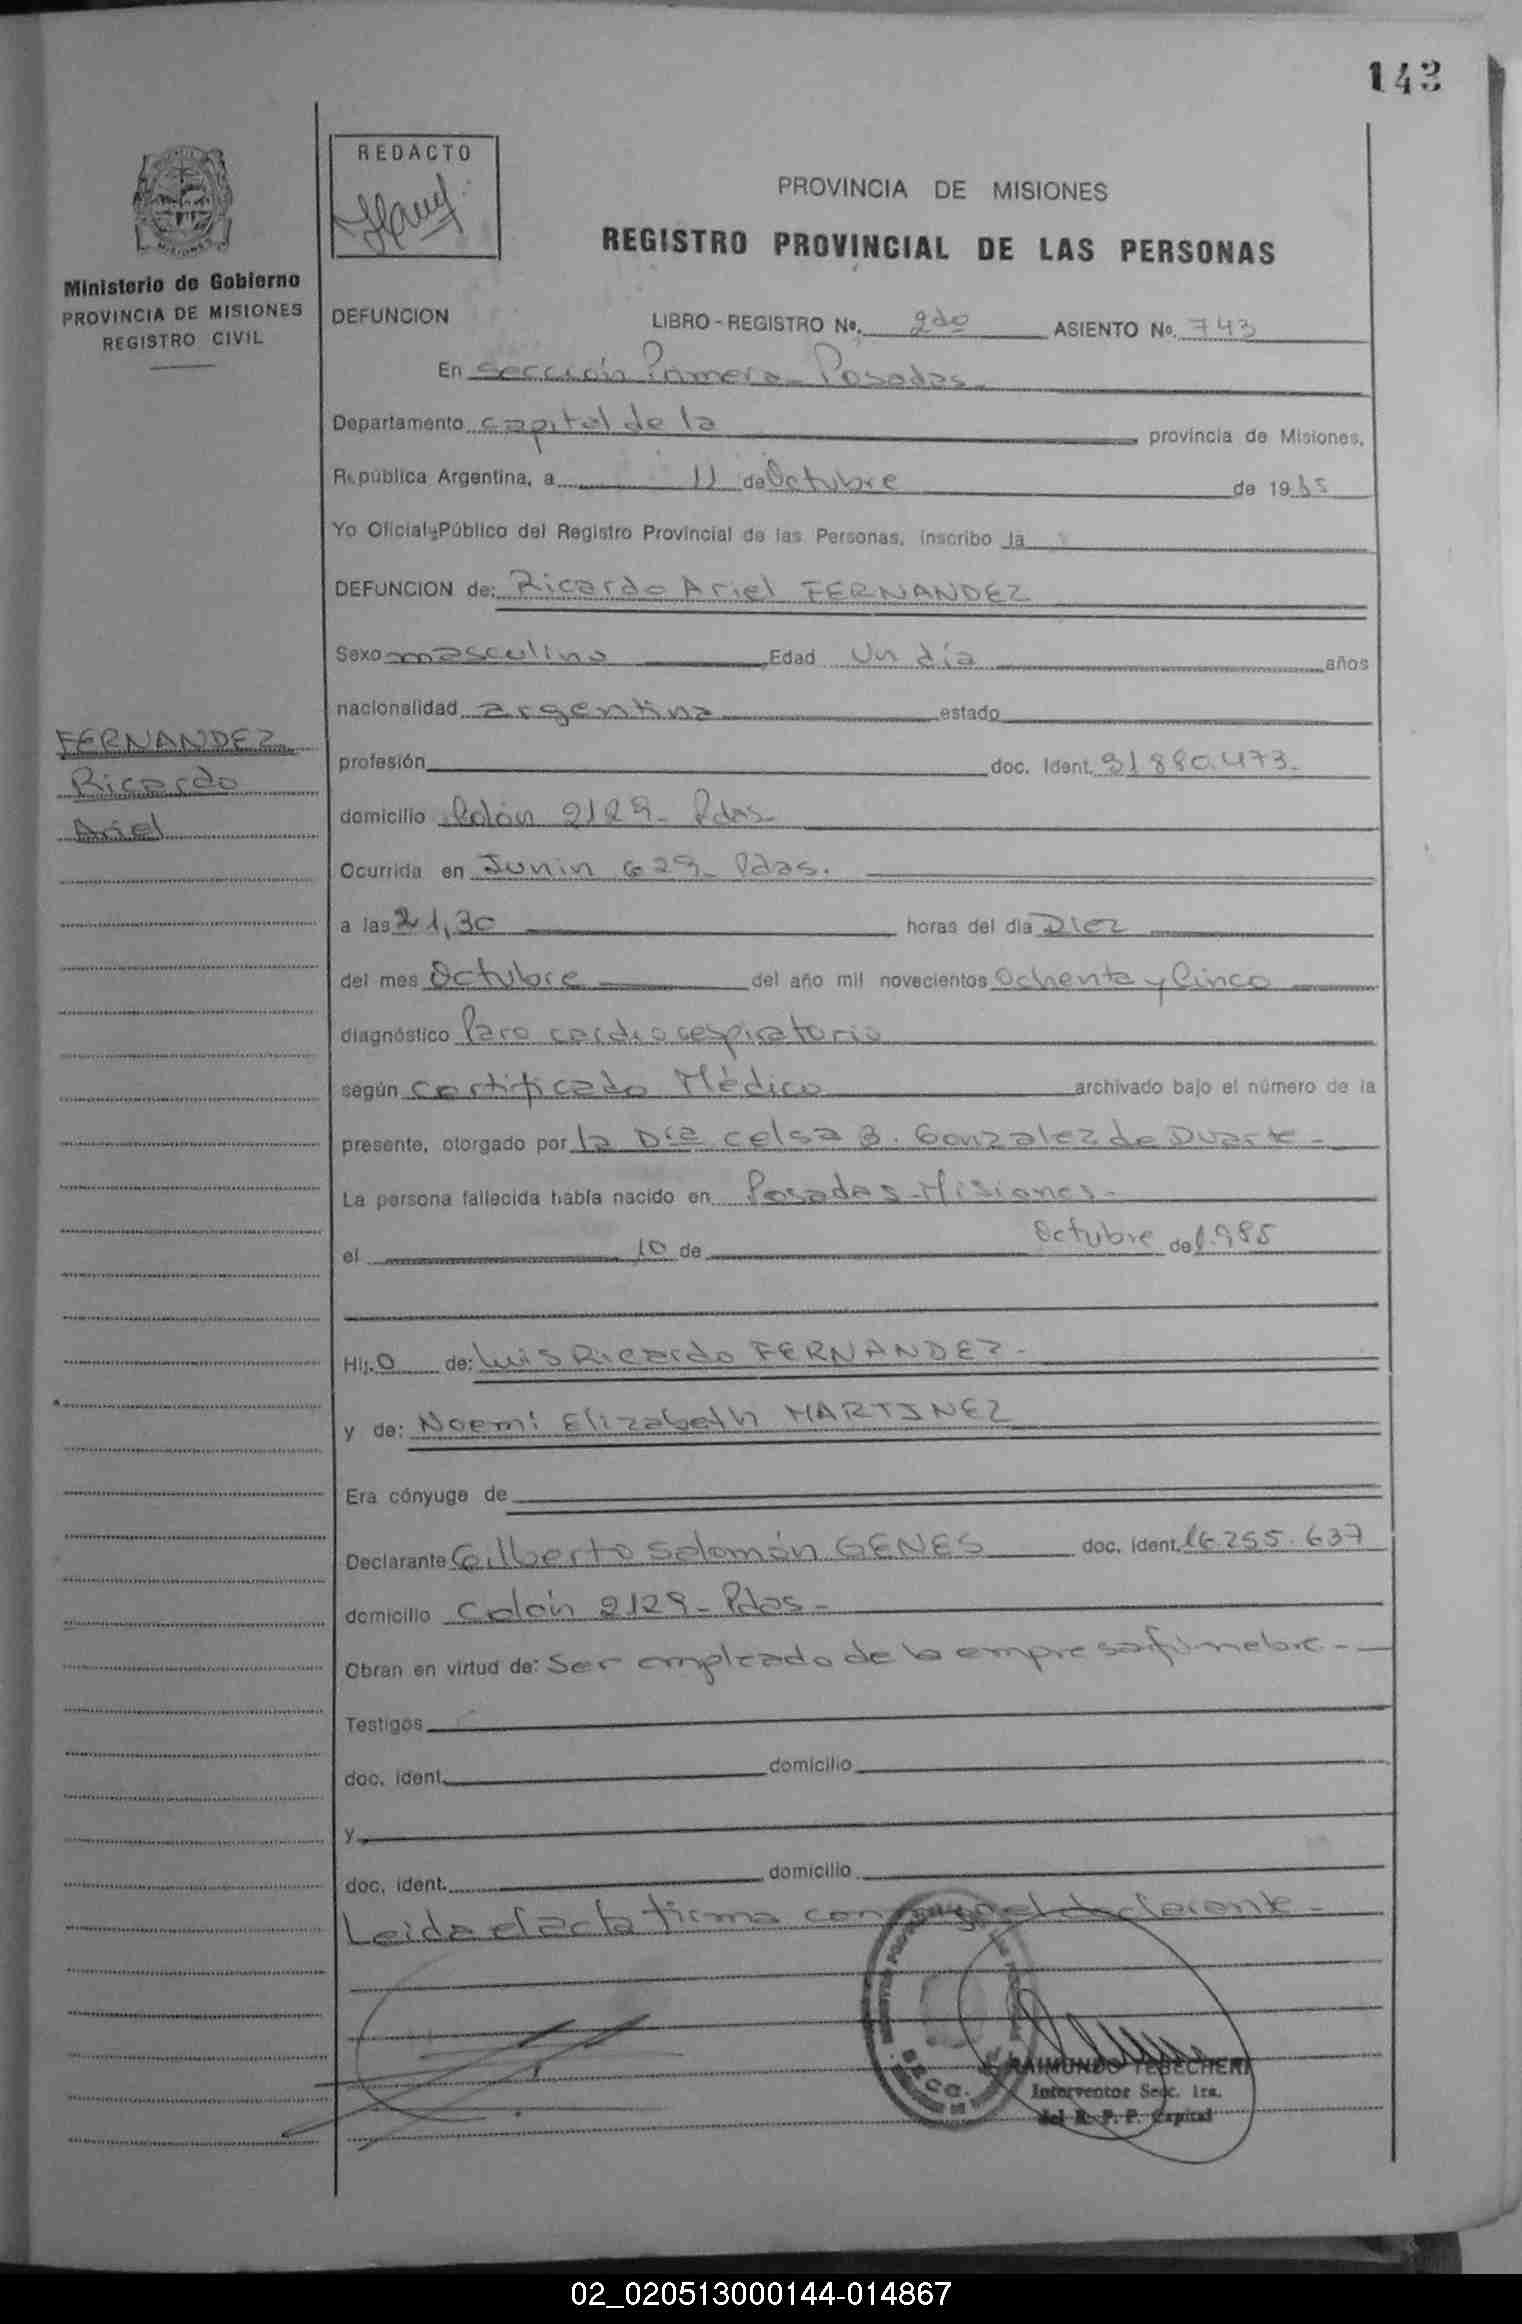 143
REDACTO
PROVINCIA DE MISIONES
REGISTRO PROVINCIAL DE LAS PERSONAS
Ministerio de Gobierno
PROVINCIA DE MISIONES
REGISTRO CIVIL
DEFUNCION LIBRO-REGISTRO No. 2do ASIENTO No. 743
En sección Primera - Posadas -
Departamento capital de la provincia de Misiones,
República Argentina, a 11 de Octubre de 1985
Yo Oficial Público del Registro Provincial de las Personas, inscribo la
DEFUNCION de: Ricardo Ariel FERNANDEZ
Sexo masculino Edad Un día años
nacionalidad argentina estado
FERNANDEZ
Ricardo
Ariel
profesión doc. Ident. 31880.473.
domicilio Colón 2129 - Pdas -
Ocurrida en Junin 629 - Pdas.
a las 21,30 horas del día Diez
del mes Octubre del año mil novecientos Ochenta y Cinco
diagnóstico Paro cardio respiratorio
según certificado Médico archivado bajo el número de la
presente, otorgado por la Dra Celsa B. Gonzalez de Duarte -
La persona fallecida había nacido en Posadas - Misiones -
el 10 de Octubre de 1.985
Hijo de: Luis Ricardo FERNANDEZ -
y de: Noemi Elizabeth MARTINEZ
Era cónyuge de
Declarante Gilberto Salomón GENES doc. ident. 16.255.637
domicilio Colón 2129 - Pdas -
Obran en virtud de: Ser empleado de la empresa fúnebre -
Testigos
doc. ident. domicilio
y
doc. ident. domicilio
Leída el acta firma conmigo el declarante -
RAIMUNDO TEBECHERI
Interventor Secc. 1ra.
del R. P. P. Capital
02_020513000144-014867